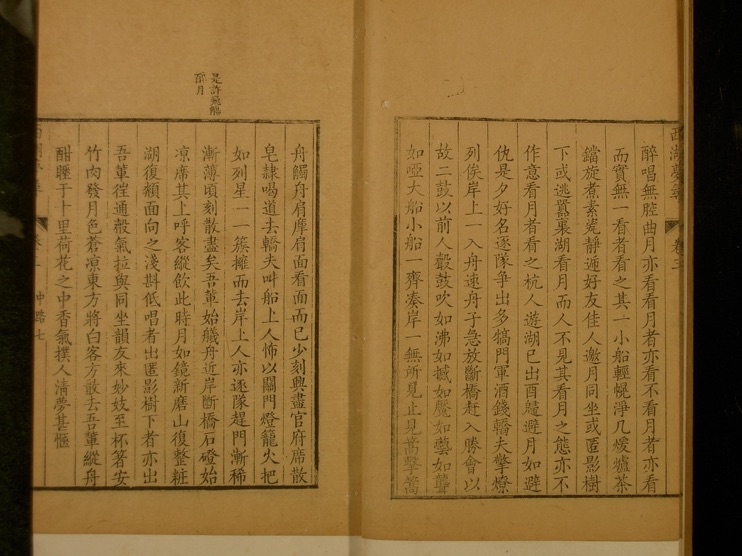 西湖夢尋 卷三
醉唱無腔曲月亦看看月者亦看不看月者亦看
而實無一看者看之其一小船輕幌淨几煖爐茶
鐺旋煮素瓷靜遞好友佳人邀月同坐或匿影樹
下或逃囂裏湖看月而人不見其看月之態亦不
作意看月者看之杭人遊湖巳出酉歸避月如避
仇是夕好名逐隊爭出多犒門軍酒錢轎夫擎燎
列俟岸上一入舟速舟子急放斷橋赶入勝會以
故二鼓以前人聲鼓吹如沸如撼如魘如囈如聾
如啞大船小船一齊凑岸一無所見止見篙擊篙
是許飛觴
醉月
舟觸舟肩摩肩面看面而已少刻興盡官府席散
皂隸喝道去轎夫叫船上人怖以關門燈籠火把
如列星一一簇擁而去岸上人亦逐隊趕門漸稀
漸薄頃刻散盡矣吾輩始艤舟近岸斷橋石磴始
凉席其上呼客縱飲此時月如鏡新磨山復整粧
湖復頮面向之淺斟低唱者出匿影樹下者亦出
吾輩徃通殽氣拉與同坐韻友來妙妓至杯箸安
竹肉發月色蒼凉東方將白客方散去吾輩縱舟
酣睡于十里荷花之中香氣撲人清夢甚愜
中路 七